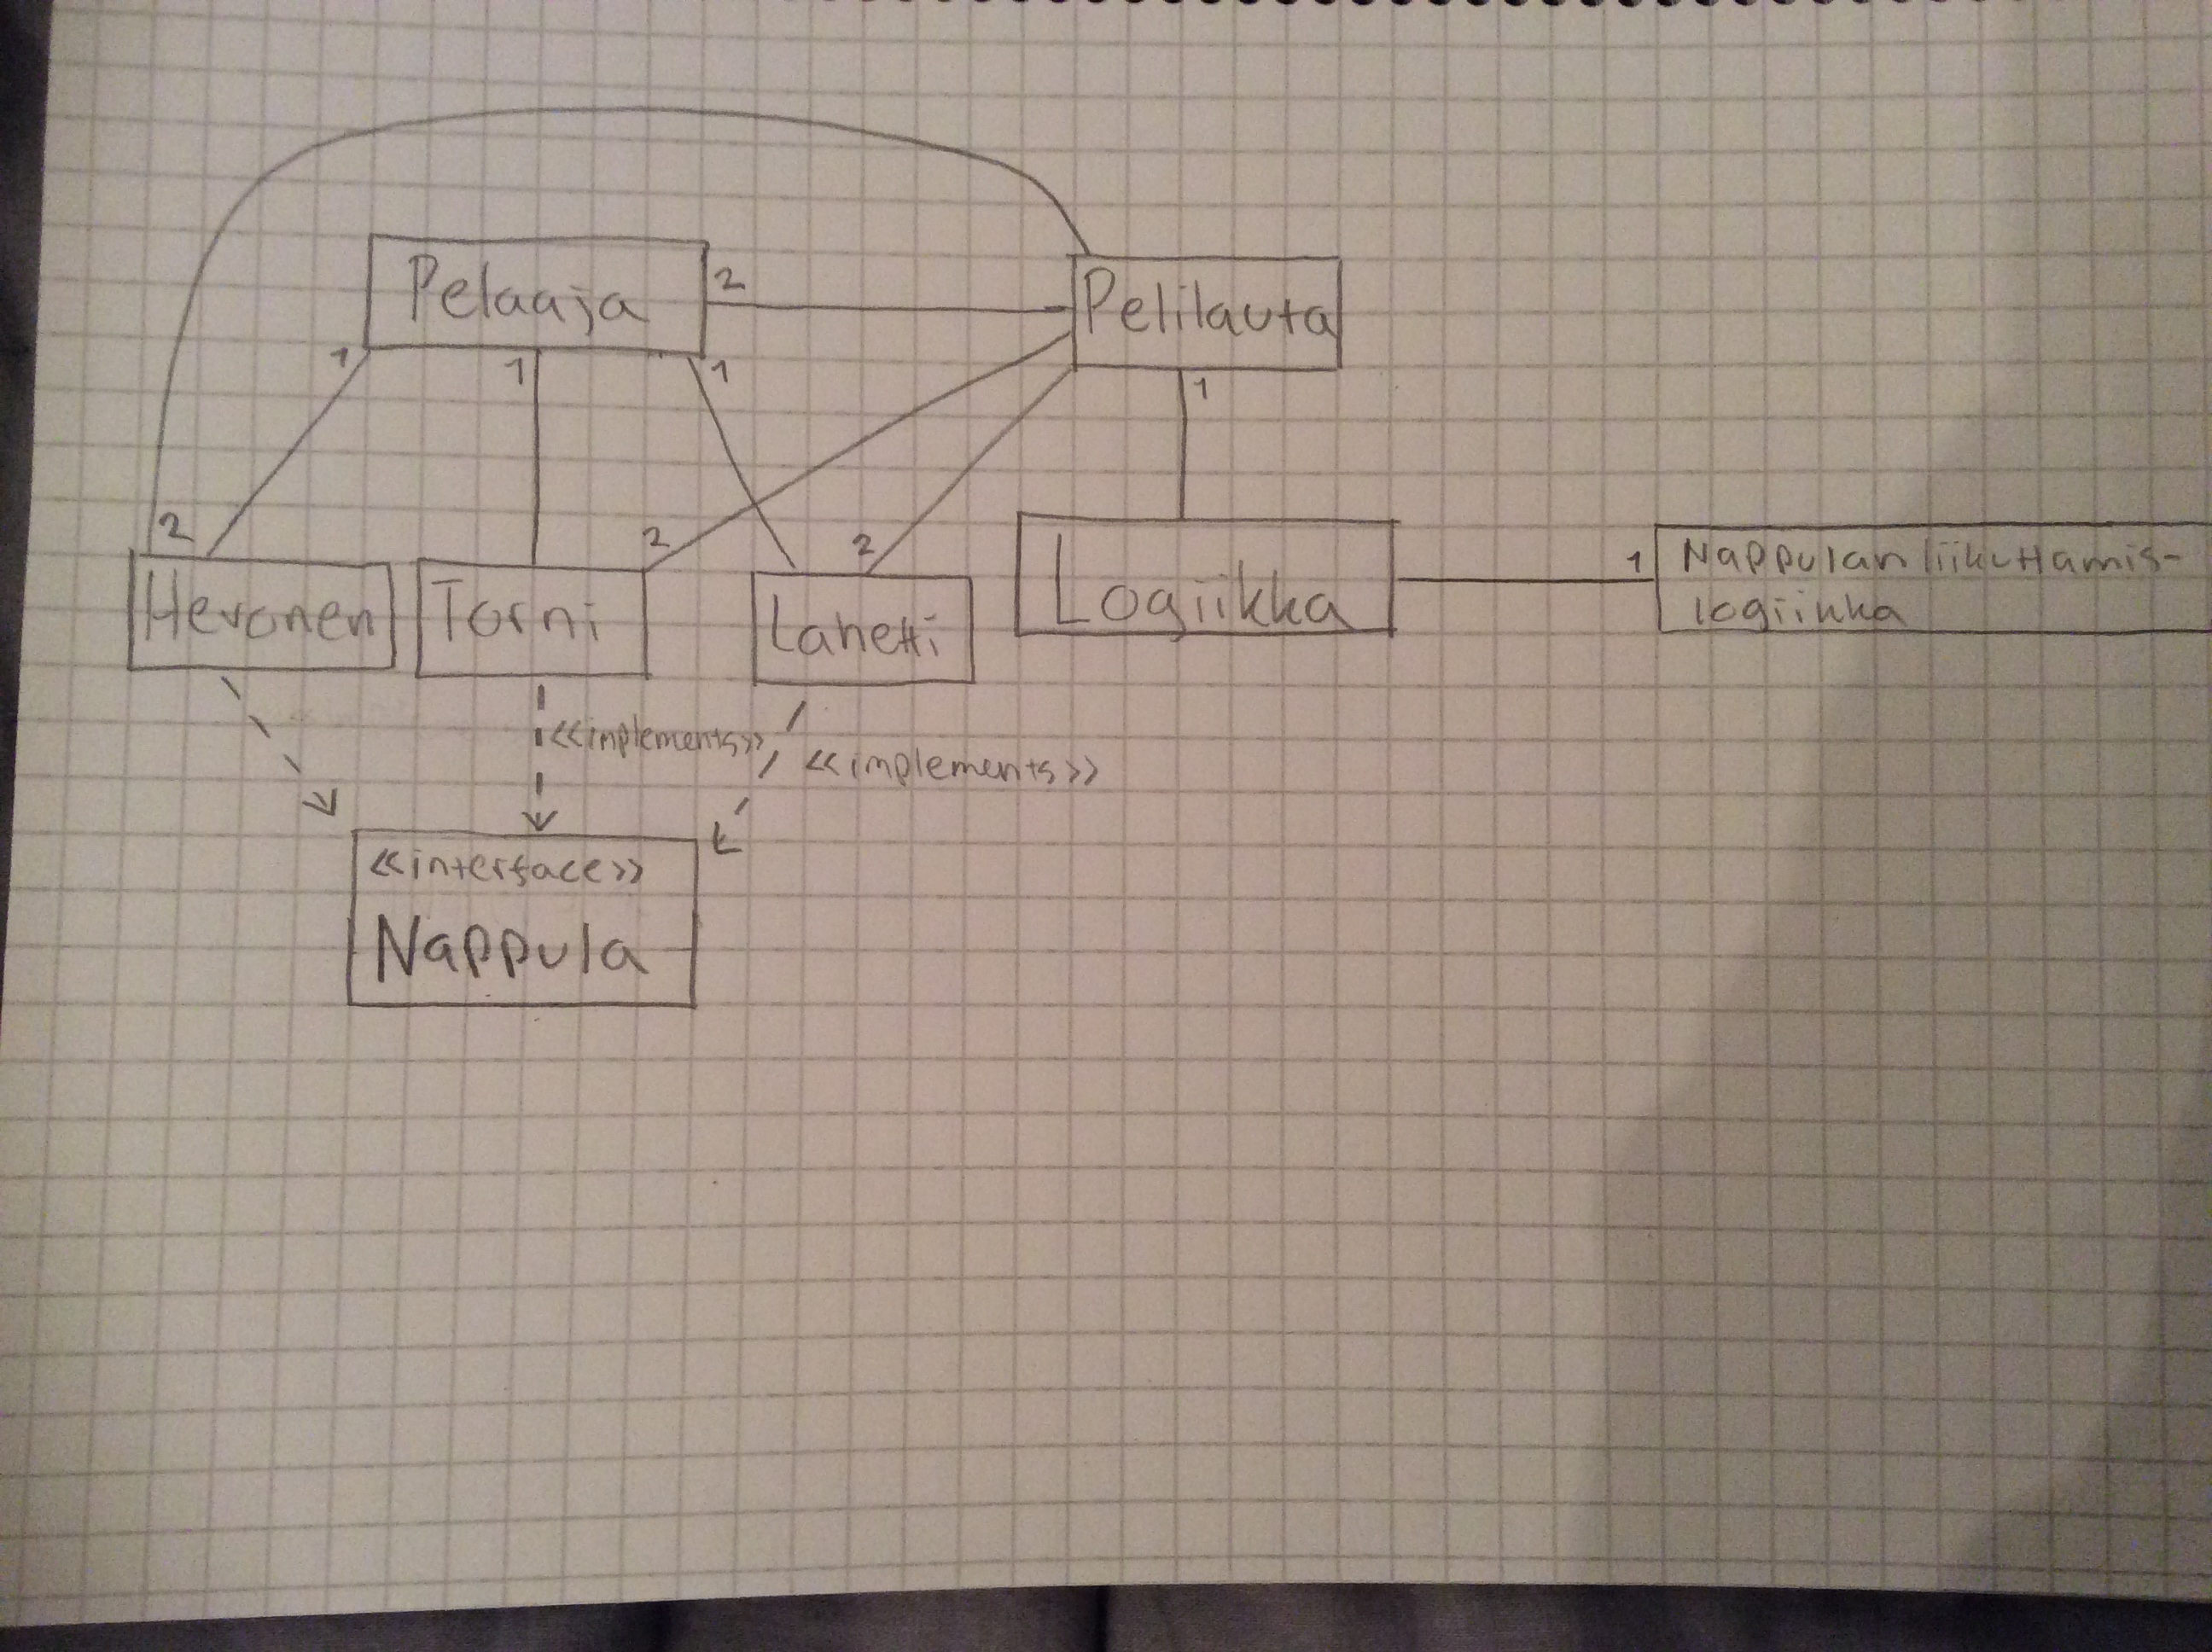 Pelaaja
2
Pelilauta
1
1
1
1
2
2
2
Hevonen
Torni
Lahetti
Logiikka
1
Nappulanliikuttamis-
logiikka
<<implements>>
<<implements>>
<<interface>>
Nappula